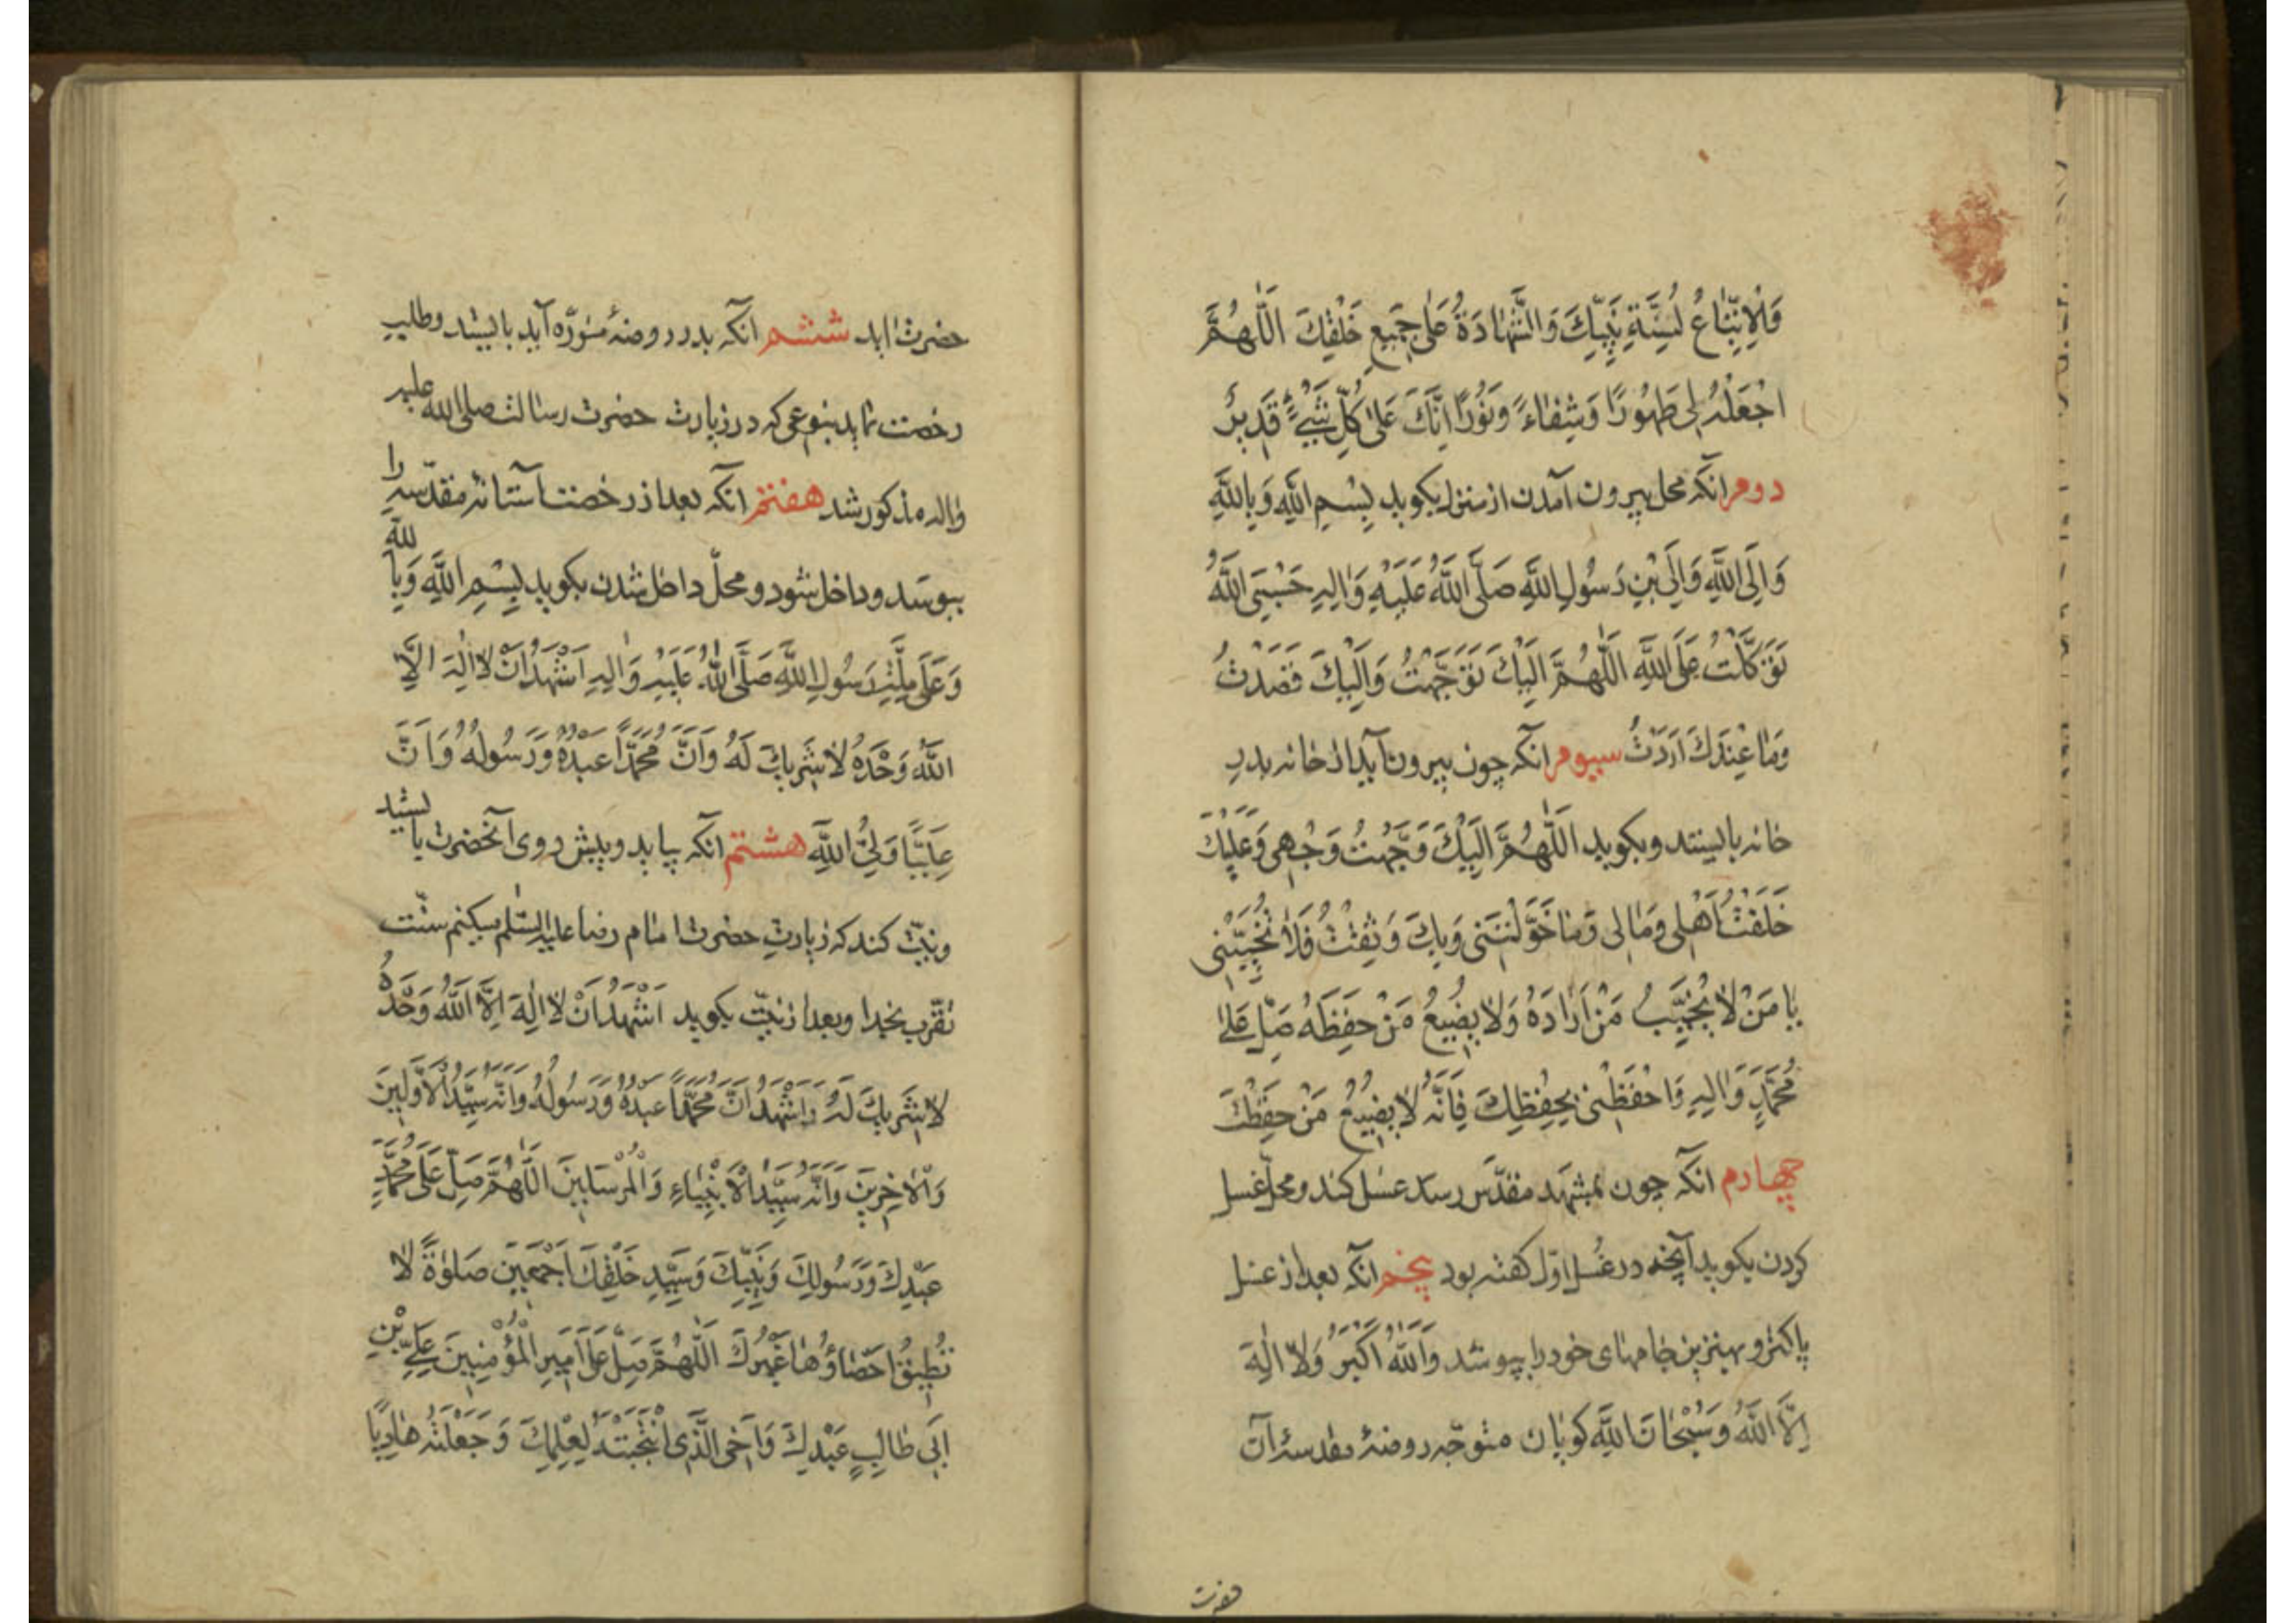 وَالْاِتِّبَاعُ لِسُنَّةِ نَبِيِّكَ وَالشَّهَادَةُ عَلٰى جَمِيعِ خَلْقِكَ اَللّٰهُمَّ
اجْعَلْهُ لِى طَهُورًا وَشِفَاءً وَنُورًا اِنَّكَ عَلٰى كُلِّ شَيْءٍ قَدِيرٌ
دوم انکه محل بیرون آمدن از منزل بکوید بِسْمِ اللّٰهِ وَبِاللّٰهِ
وَاِلَى اللّٰهِ وَاِلَى بْنِ رَسُولِ اللّٰهِ صَلَّى اللّٰهُ عَلَيْهِ وَاٰلِهِ حَسْبِىَ اللّٰهُ
تَوَكَّلْتُ عَلَى اللّٰهِ اَللّٰهُمَّ اِلَيْكَ تَوَجَّهْتُ وَاِلَيْكَ قَصَدْتُ
وَمَا عِنْدَكَ اَرَدْتُ سیوم انکه چون بیرون آید از خانه بدر
خانه بایستد و بکوید اَللّٰهُمَّ اِلَيْكَ وَجَّهْتُ وَجْهِى وَعَلَيْكَ
خَلَّفْتُ اَهْلِى وَمَالِى وَمَا خَوَّلْتَنِى وَبِكَ وَثِقْتُ فَلَا تُخَيِّبْنِى
يَا مَنْ لَا يُخَيِّبُ مَنْ اَرَادَهُ وَلَا يُضِيعُ مَنْ حَفِظَهُ صَلِّ عَلٰى
مُحَمَّدٍ وَاٰلِهِ وَاحْفَظْنِى بِحِفْظِكَ فَاِنَّهُ لَا يُضِيعُ مَنْ حَفِظْتَ
چهارم انکه چون بمشهد مقدّس رسد غسل کند و محلّ غسل
کردن بکوید آنچه در غُسل اوّل کفته بود پنجم انکه بعد از غسل
پاکتر و بهترین جامهای خود را بپوشد وَاللّٰهُ اَكْبَرُ وَلَا اِلٰهَ
اِلَّا اللّٰهُ وَسُبْحَانَ اللّٰهِ کویان متوجّه روضهٔ مقدسهٔ آن
حضرت
حضرت اید ششم انکه بدر روضهٔ منوّره آید بایستد وطلب
رخصت نماید بنوعی که در زیارت حضرت رسالت صلی الله علیه
واله مذکور شد هفتم انکه بعد از رخصت آستانهٔ مقدّسه را
ببوسد و داخل شود و محلّ داخل شدن بکوید بِسْمِ اللّٰهِ وَبِاللّٰهِ
وَعَلٰى مِلَّةِ رَسُولِ اللّٰهِ صَلَّى اللّٰهُ عَلَيْهِ وَاٰلِهِ اَشْهَدُ اَنْ لَا اِلٰهَ اِلَّا
اللّٰهُ وَحْدَهُ لَا شَرِيكَ لَهُ وَاَنَّ مُحَمَّدًا عَبْدُهُ وَرَسُولُهُ وَاَنَّ
عَلِيًّا وَلِيُّ اللّٰهِ هشتم انکه بیاید و پیش روی آنحضرت بایستد
ونیّت کند که زیارتِ حضرت امام رضا علیه السّلم میکنم سنّت
تقرّب بخدا وبعد از نیّت بکوید اَشْهَدُ اَنْ لَا اِلٰهَ اِلَّا اللّٰهُ وَحْدَهُ
لَا شَرِيكَ لَهُ وَاَشْهَدُ اَنَّ مُحَمَّدًا عَبْدُهُ وَرَسُولُهُ وَاَنَّهُ سَيِّدُ الْاَوَّلِينَ
وَالْاٰخِرِينَ وَاَنَّهُ سَيِّدُ الْاَنْبِيَاءِ وَالْمُرْسَلِينَ اَللّٰهُمَّ صَلِّ عَلٰى مُحَمَّدٍ
عَبْدِكَ وَرَسُولِكَ وَنَبِيِّكَ وَسَيِّدِ خَلْقِكَ اَجْمَعِينَ صَلٰوةً لَا
تُطِيقُ اِحْصَاؤُهَا غَيْرُكَ اَللّٰهُمَّ صَلِّ عَلٰى اَمِيرِ الْمُؤْمِنِينَ عَلِيِّ بْنِ
اَبِى طَالِبٍ عَبْدِكَ وَاَخِى الَّذِى انْتَجَبْتَهُ لِعِلْمِكَ وَجَعَلْتَهُ هَادِيًا